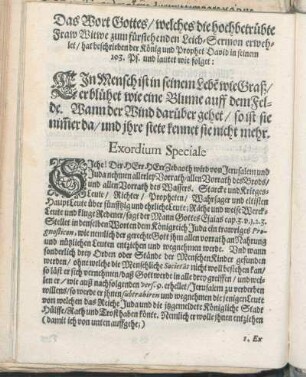 Das Wort Gottes/ welches die hochbetrübte
Fraw Witwe zum fürstehenden Leich-Sermon erweh-
let/ hat beschrieben der König und Prophet David in seinem
103. Ps. und lautet wie folget:
EIn Mensch ist in seinem Lebē wie Graß/
er blühet wie eine Blume auff dem Fel-
de. Wann der Wind darüber gehet/ so ist sie
nim̄er da/ und jhre stete kennet sie nicht mehr.
Exordium Speciale
SIehe! Der HErr HErr Zebaoth wird von Jerusalem und
Juda nehmen allerley Vorrath/ allen Vorrath des Brods/
und allen Vorrath des Wassers. Starcke und Krieges
Leute/ Richter/ Propheten/ Wahrsager und eltisten
Haupt Leute über fünfftzig und ehrliche Leute: Räthe und weise Werck-
Leute und kluge Redener/ sagt der Mann Gottes Esaias cap. 3. v. 1. 2. 3.
Steller in denselben Worten dem Königreich Juda ein trawriges Pro-
gnosticon, wie nemlich der gerechte Gott jhm allen vorrath an Nahrung
und nützlichen Leuten entziehen und wegnehmen werde. Und wann
sonderlich drey Orden oder Stände der Menschen Kinder gefunden
werden/ ohne welche die Menschliche Societät nicht woll bestehen kan/
so läst er sich vernehmen/ daß Gott werde in alle drey greiffen/ und weil
er/ wie auß nachfolgenden vers. 9. erhellet/ Jerusalem zu verderben
willens/ so werde er jhnen subtrahiren und wegnehmen die jenigen Leute
von welchen das Reiche Juda und die itzgemeldete Königliche Stadt
Hülffe/ Rath und Trost haben könte. Nemlich er wolle jhnen entziehen
(damit ich von unten auffgehe:)
1. Ex